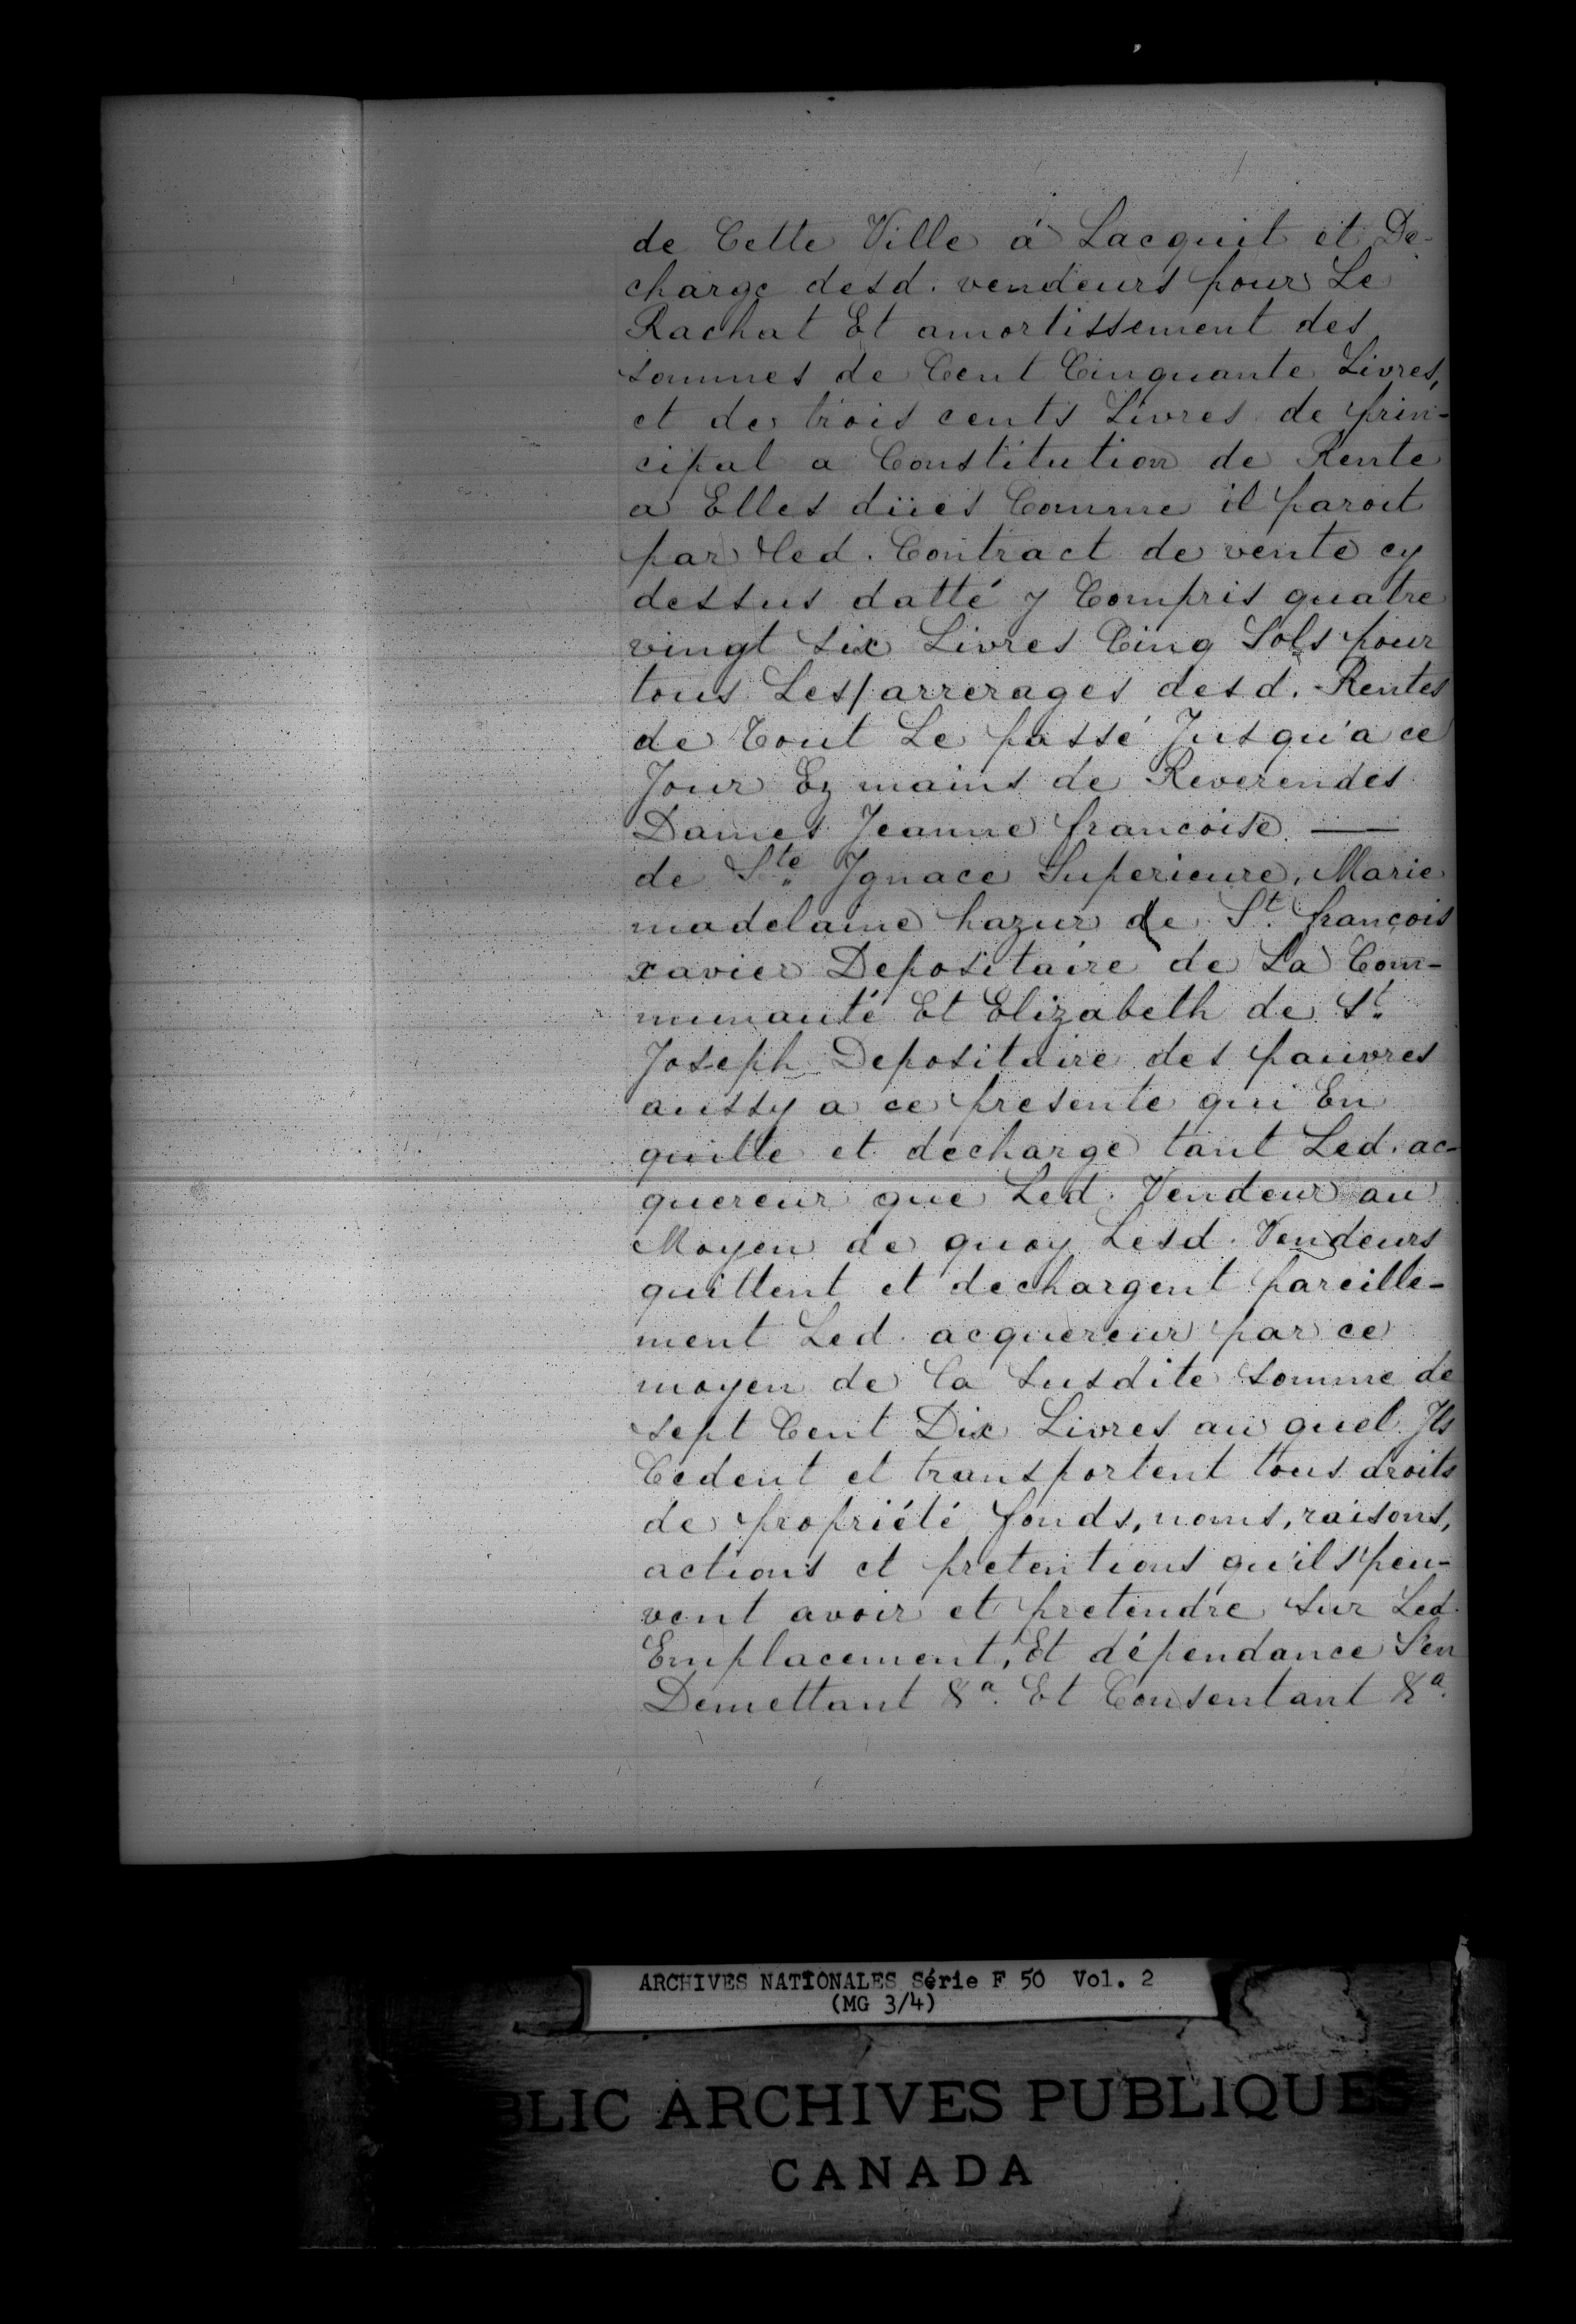 de Cette Ville á Lacquit et De-
charge desd. vendeurs pour Le
Rachat Et amortissement des
sommes de Cent Cinquante Livres,
et de trois cents Livres de prin-
cipal a Constitution de Rente
a Elles düés Comme il paroit
par led. Contract de vente cy
dessus datté y Compris quatre
vingt six Livres Cinq Sols pour
tous Les arrerages desd. Rentes
de Tout Le passé Jusqu'a ce
Jour Ez mains de Reverendes
Dames Jeanne francoise —
de Ste Ignace Superieure, Marie
madelaine hazur de St. françois
xavier Depositaire de La Com-
munauté Et Elizabeth de St.
Joseph Depositaire des pauvres
aussy a ce presente qui En
quitte et decharge tant Led. ac-
quereur que Led. Vendeur au
Moyen de quoy Lesd. Vendeurs
quittent et dechargent pareille-
ment Led. acquereur par ce
moyen de la susdite somme de
sept Cent Dix Livres au quel Ils
Cedent et transportent tous droits
de propriété fonds, noms, raisons,
actions et pretentions qu'ils peu-
vent avoir et pretendre sur Led.
Emplacement, Et dépendance S'en
Demettant &a. Et Consentant &a.
ARCHIVES NATIONALES Série F 50 Vol. 2
(MG 3/4)
BLIC ARCHIVES PUBLIQUES
CANADA